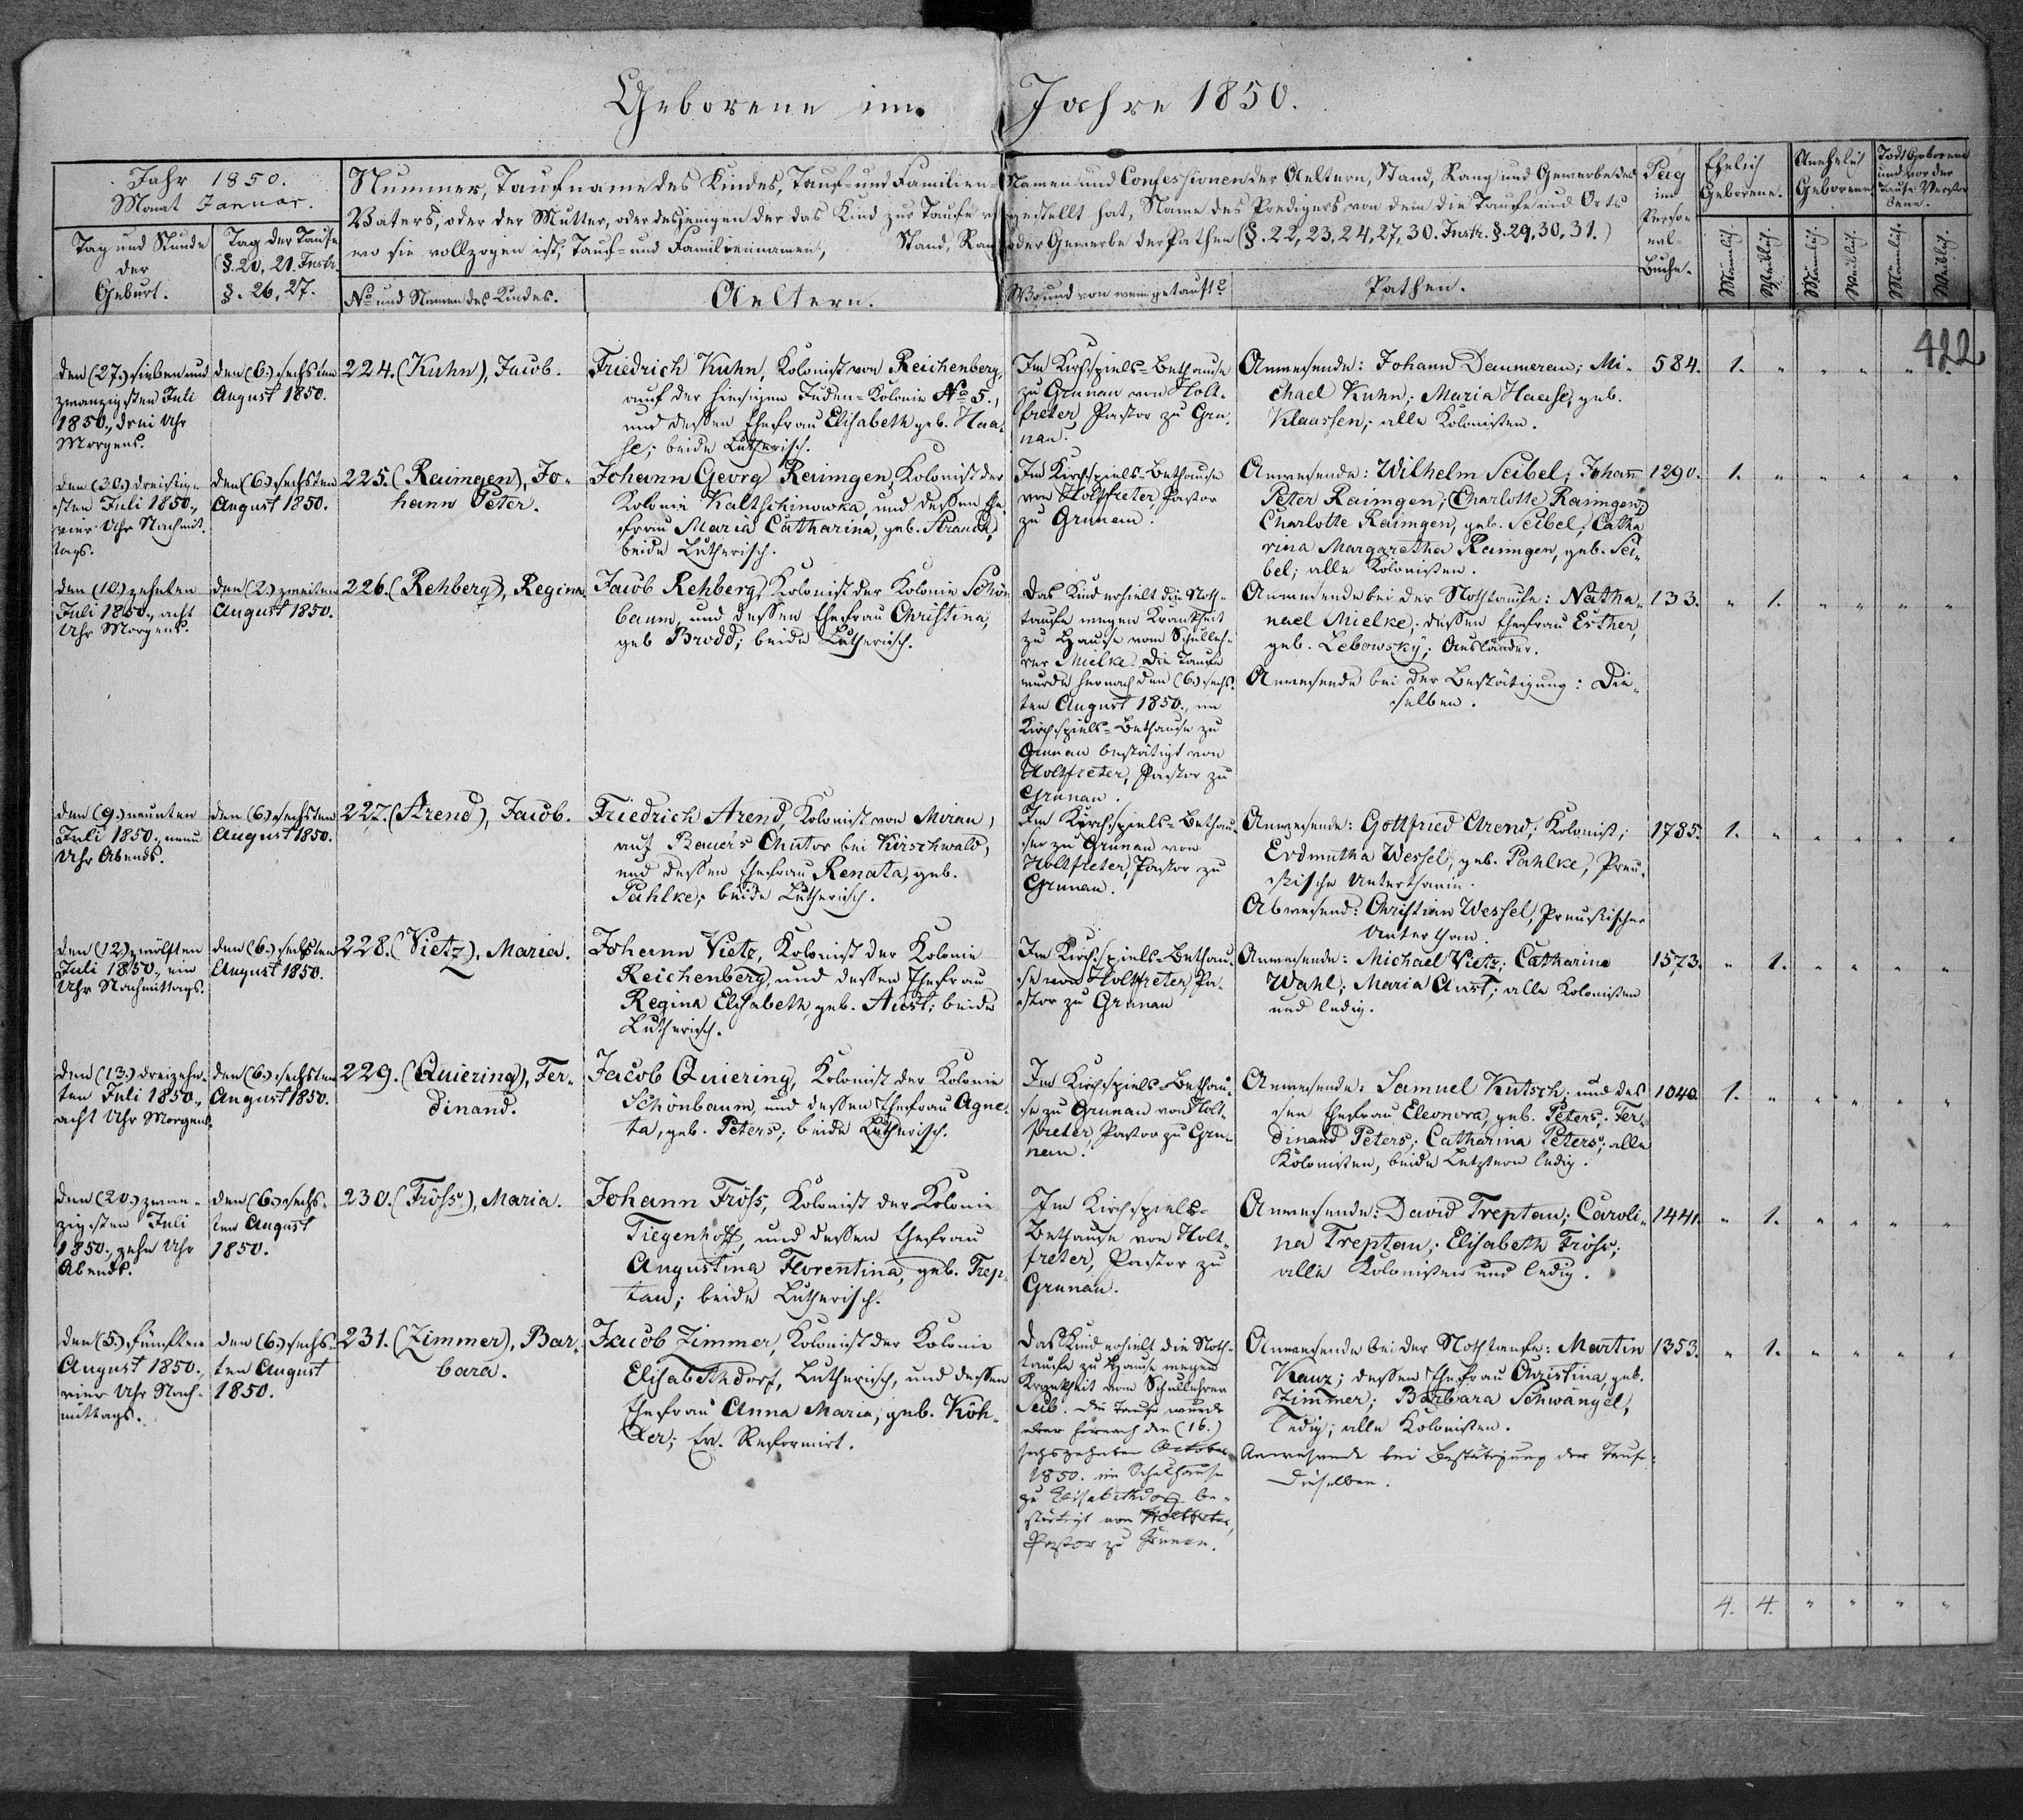 Geborene im Jahre 1850.
Jahr 1850.
Monat Januar.
Tag und Stunde
der
Geburt.
Tag der Taufe
(§. 20, 21. Instr.
§. 26, 27.
Nummer, Taufname des Kindes, Tauf- und Familien-
Vaters, oder der Mutter, oder desjenigen der das Kind zur Taufe
wo sie vollzogen ist, Tauf- und Familiennamen, Stand, Rang
No und Namen des Kindes.
Aeltern.
Namen und Confessionen der Aeltern, Stand, Rang und Gewerbe des
gestellt hat, Name des Predigers von dem die Taufe und Orts
oder Gewerbe der Pathen (§. 22, 23, 24, 27, 30. Instr. §. 29, 30, 31.)
Wo und von wem getauft?
Pathen.
Pag
im
Perso-
nal-
Buche.
Ehelich
Geborene.
Unehelich
Geborene
Todt Geborene
und vor der
Taufe Verstor-
bene.
Männlich.
Weiblich.
Männlich.
Weiblich.
Männlich.
Weiblich.
422
den (27.) sieben und
zwanzigsten Juli
1850., drei Uhr
Morgens.
den (6.) sechsten
August 1850.
224. (Kuhn), Jacob.
Friedrich Kuhn, Kolonist von Reichenberg,
auf der hiesigen Juden-Kolonie No 5.,
und dessen Ehefrau Elisabeth geb. Haa-
se; beide Lutherisch.
Im Kirchspiels-Bethause
zu Grunau von Holt-
freter, Pastor zu Gru-
nau.
Anwesende: Johann Daumerau; Mi-
chael Kuhn; Maria Haase, geb.
Klaassen; alle Kolonisten.
584. 1. " " " "
den (30.) dreißig-
sten Juli 1850.,
vier Uhr Nachmit-
tags.
den (6.) sechsten
August 1850.
225. (Raimgen), Jo-
hann Peter.
Johann Georg Raimgen, Kolonist der
Kolonie Kaltschinowka, und dessen Ehe-
frau Maria Catharina, geb. Strauch,
beide Lutherisch.
Im Kirchspiels-Bethause
von Holtfreter, Pastor
zu Grunau.
Anwesende: Wilhelm Seibel; Johann
Peter Raimgen; Charlotte Raimgen;
Charlotte Raimgen, geb. Seibel; Catha-
rina Margaretha Raimgen, geb. Sei-
bel; alle Kolonisten.
1290. 1. " " " " "
den (10.) zehnten
Juli 1850., acht
Uhr Morgens.
den (2.) zweiten
August 1850.
226. (Rehberg), Regina
Jacob Rehberg, Kolonist der Kolonie Schön-
baum, und dessen Ehefrau Christina,
geb Brodd; beide Lutherisch.
Das Kind erhielt die Noth-
taufe wegen Krankheit
zu Hause vom Schulleh-
rer Mielke. Die Taufe
wurde hernach den (6.) sechs-
ten August 1850., im
Kirchspiels-Bethause zu
Grunau bestätigt von
Holtfreter, Pastor zu
Grunau.
Anwesende bei der Nothtaufe: Natha-
nael Mielke; dessen Ehefrau Esther,
geb. Lebowsky; Ausländer.
Anwesende bei der Bestätigung: Die-
selben.
133. " 1. " " " "
den (9.) neunten
Juli 1850., neun
Uhr Abends.
den (6.) sechsten
August 1850.
227. (Arend), Jacob.
Friedrich Arend, Kolonist von Mirau,
auf Bauer's Chutor bei Kirschwald,
und dessen Ehefrau Renata, geb.
Pahlke; beide Lutherisch.
Im Kirchspiels-Bethau-
se zu Grunau von
Holtfreter, Pastor zu
Grunau.
Anwesende: Gottfried Arend, Kolonist;
Erdmutha Wessel, geb. Pahlke, Preu-
ßische Unterthanin.
Abwesend: Christian Wessel, Preußischer
Unterthan.
1785. 1. " " " " "
den (12.) zwölften
Juli 1850., ein
Uhr Nachmittags.
den (6.) sechsten
August 1850.
228. (Vietz), Maria.
Johann Vietz, Kolonist der Kolonie
Reichenberg, und dessen Ehefrau
Regina Elisabeth, geb. Aust; beide
Lutherisch.
Im Kirchspiels-Bethau-
se von Holtfreter, Pa-
stor zu Grunau
Anwesende: Michael Vietz; Catharina
Wahl; Maria Aust; alle Kolonisten
und ledig.
1573. " 1. " " " "
den (13.) dreizehn-
ten Juli 1850.,
acht Uhr Morgens.
den (6.) sechsten
August 1850.
229. (Quiering), Fer-
dinand.
Jacob Quiering, Kolonist der Kolonie
Schönbaum, und dessen Ehefrau Agne-
ta, geb. Peters; beide Lutherisch.
Im Kirchspiels-Bethau-
se zu Grunau von Holt-
freter, Pastor zu Gru-
nau.
Anwesende: Samuel Kutsch; und des-
sen Ehefrau Eleonora, geb. Peters; Fer-
dinand Peters; Catharina Peters; alle
Kolonisten, beide Letztern ledig.
1040. 1. " " " " "
den (20.) zwan-
zigsten Juli
1850., zehn Uhr
Abends.
den (6.) sechs-
ten August
1850.
230. (Fröss), Maria.
Johann Fröss, Kolonist der Kolonie
Tiegenhoff, und dessen Ehefrau
Augustina Florentina, geb. Trep-
tau; beide Lutherisch.
Im Kirchspiels-
Bethause von Holt-
freter, Pastor zu
Grunau.
Anwesende: David Treptau; Caroli-
na Treptau; Elisabeth Fröss;
alle Kolonisten und ledig.
1441. " 1. " " " "
den (5.) fünften
August 1850.,
vier Uhr Nach-
mittags.
den (6.) sechs-
ten August
1850.
231. (Zimmer), Bar-
bara.
Jacob Zimmer, Kolonist der Kolonie
Elisabethdorf, Lutherisch, und dessen
Ehefrau Anna Maria, geb. Köh-
ler; Ev. Reformirt.
Das Kind erhielt die Noth-
taufe zu Hause wegen
Krankheit vom Schullehrer
Seib. Die Taufe wurde
aber hernach den (16.)
sechszehnten October
1850. im Schulhause
zu Elisabethdorf be-
stätigt von Holtfreter,
Pastor zu Grunau.
Anwesende bei der Nothtaufe: Martin
Kauz; dessen Ehefrau Christina, geb.
Zimmer; Barbara Schwängel,
ledig; alle Kolonisten.
Anwesende bei Bestätigung der Taufe:
Dieselben.
1353. " 1. " " " "
4. 4. " " " "